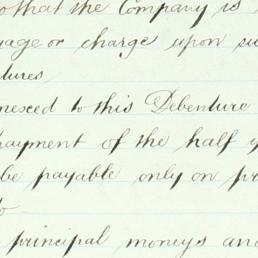 so that the Company is
gage or charge upon su
tures
nexed to this Debenture
payment of the half y
be payable only on pr
to
principal moneys and